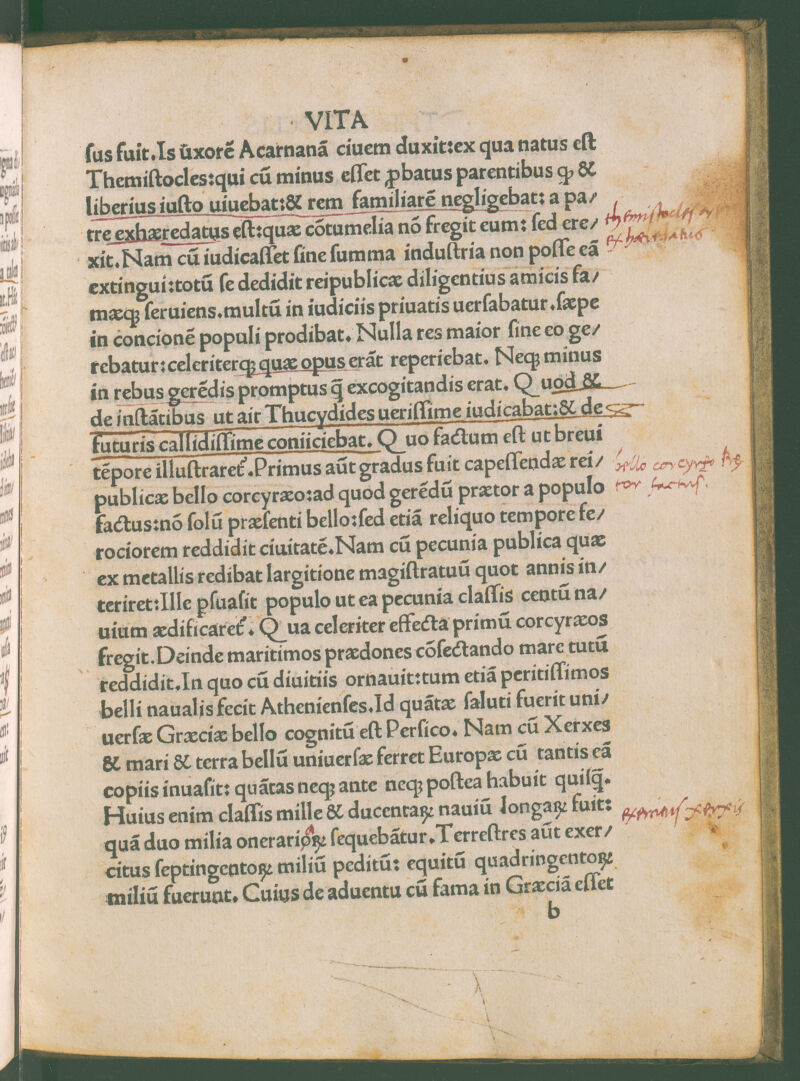 VITA
ſus fuit.Is ūxorē Acarnanā ciuem duxit:ex qua natus eſt
Themiſtocles:qui cū minus eſſet ꝓbatus parentibus ꝙ &
liberius iuſto uiuebat:& rem familiarē negligebat: a pa/
tre exhæredatus eſt:quæ cōtumelia nō fregit eum: ſed ere/
themistocles
exhæredatus
xit.Nam cū iudicaſſet ſine ſumma induſtria non poſſe eā
extingui:totū ſe dedidit reipublicæ diligentius amicis fa/
mæq; ſeruiens.multū in iudiciis priuatis uerſabatur.ſæpe
in concionē populi prodibat. Nulla res maior ſine eo ge/
rebatur:celeriterq; quæ opus erāt reperiebat. Neq; minus
in rebus gerēdis promptus q̄ excogitandis erat. Quod &
de inſtātibus ut ait Thucydides ueriſſime iudicabat:& de
futuris callidiſſime coniiciebat. Quo factum eſt ut breui
tēpore illuſtraret̄.Primus aūt gradus fuit capeſſendæ rei/
bello corcyræo
publicæ bello corcyræo:ad quod gerēdū prætor a populo
factus.
factus:nō ſolū præſenti bello:ſed etiā reliquo tempore fe/
rociorem reddidit ciuitatē.Nam cū pecunia publica quæ
ex metallis redibat largitione magiſtratuū quot annis in/
teriret:Ille ꝑſuaſit populo ut ea pecunia claſſis centū na/
uium ædificaret̄. Qua celeriter effecta primū corcyræos
fregit.Deinde maritimos prædones cōſectando mare tutū
reddidit.In quo cū diuitiis ornauit:tum etiā peritiſſimos
belli naualis fecit Athenienſes.Id quātæ ſaluti fuerit uni/
uerſæ Græciæ bello cognitū eſt Perſico. Nam cū Xerxes
& mari & terra bellū uniuerſæ ferret Europæ cū tantis eā
copiis inuaſit: quātas neq; ante neq; poſtea habuit quiſq̄.
Huius enim claſſis mille & ducentaꝝ nauiū longaꝝ fuit:
exercitus xerxis
quā duo milia onerarioꝝ ſequebātur.Terreſtres aūt exer/
citus ſeptingentoꝝ miliū peditū: equitū quadringentoꝝ
miliū fuerunt. Cuius de aduentu cū fama in Græciā eſſet
b